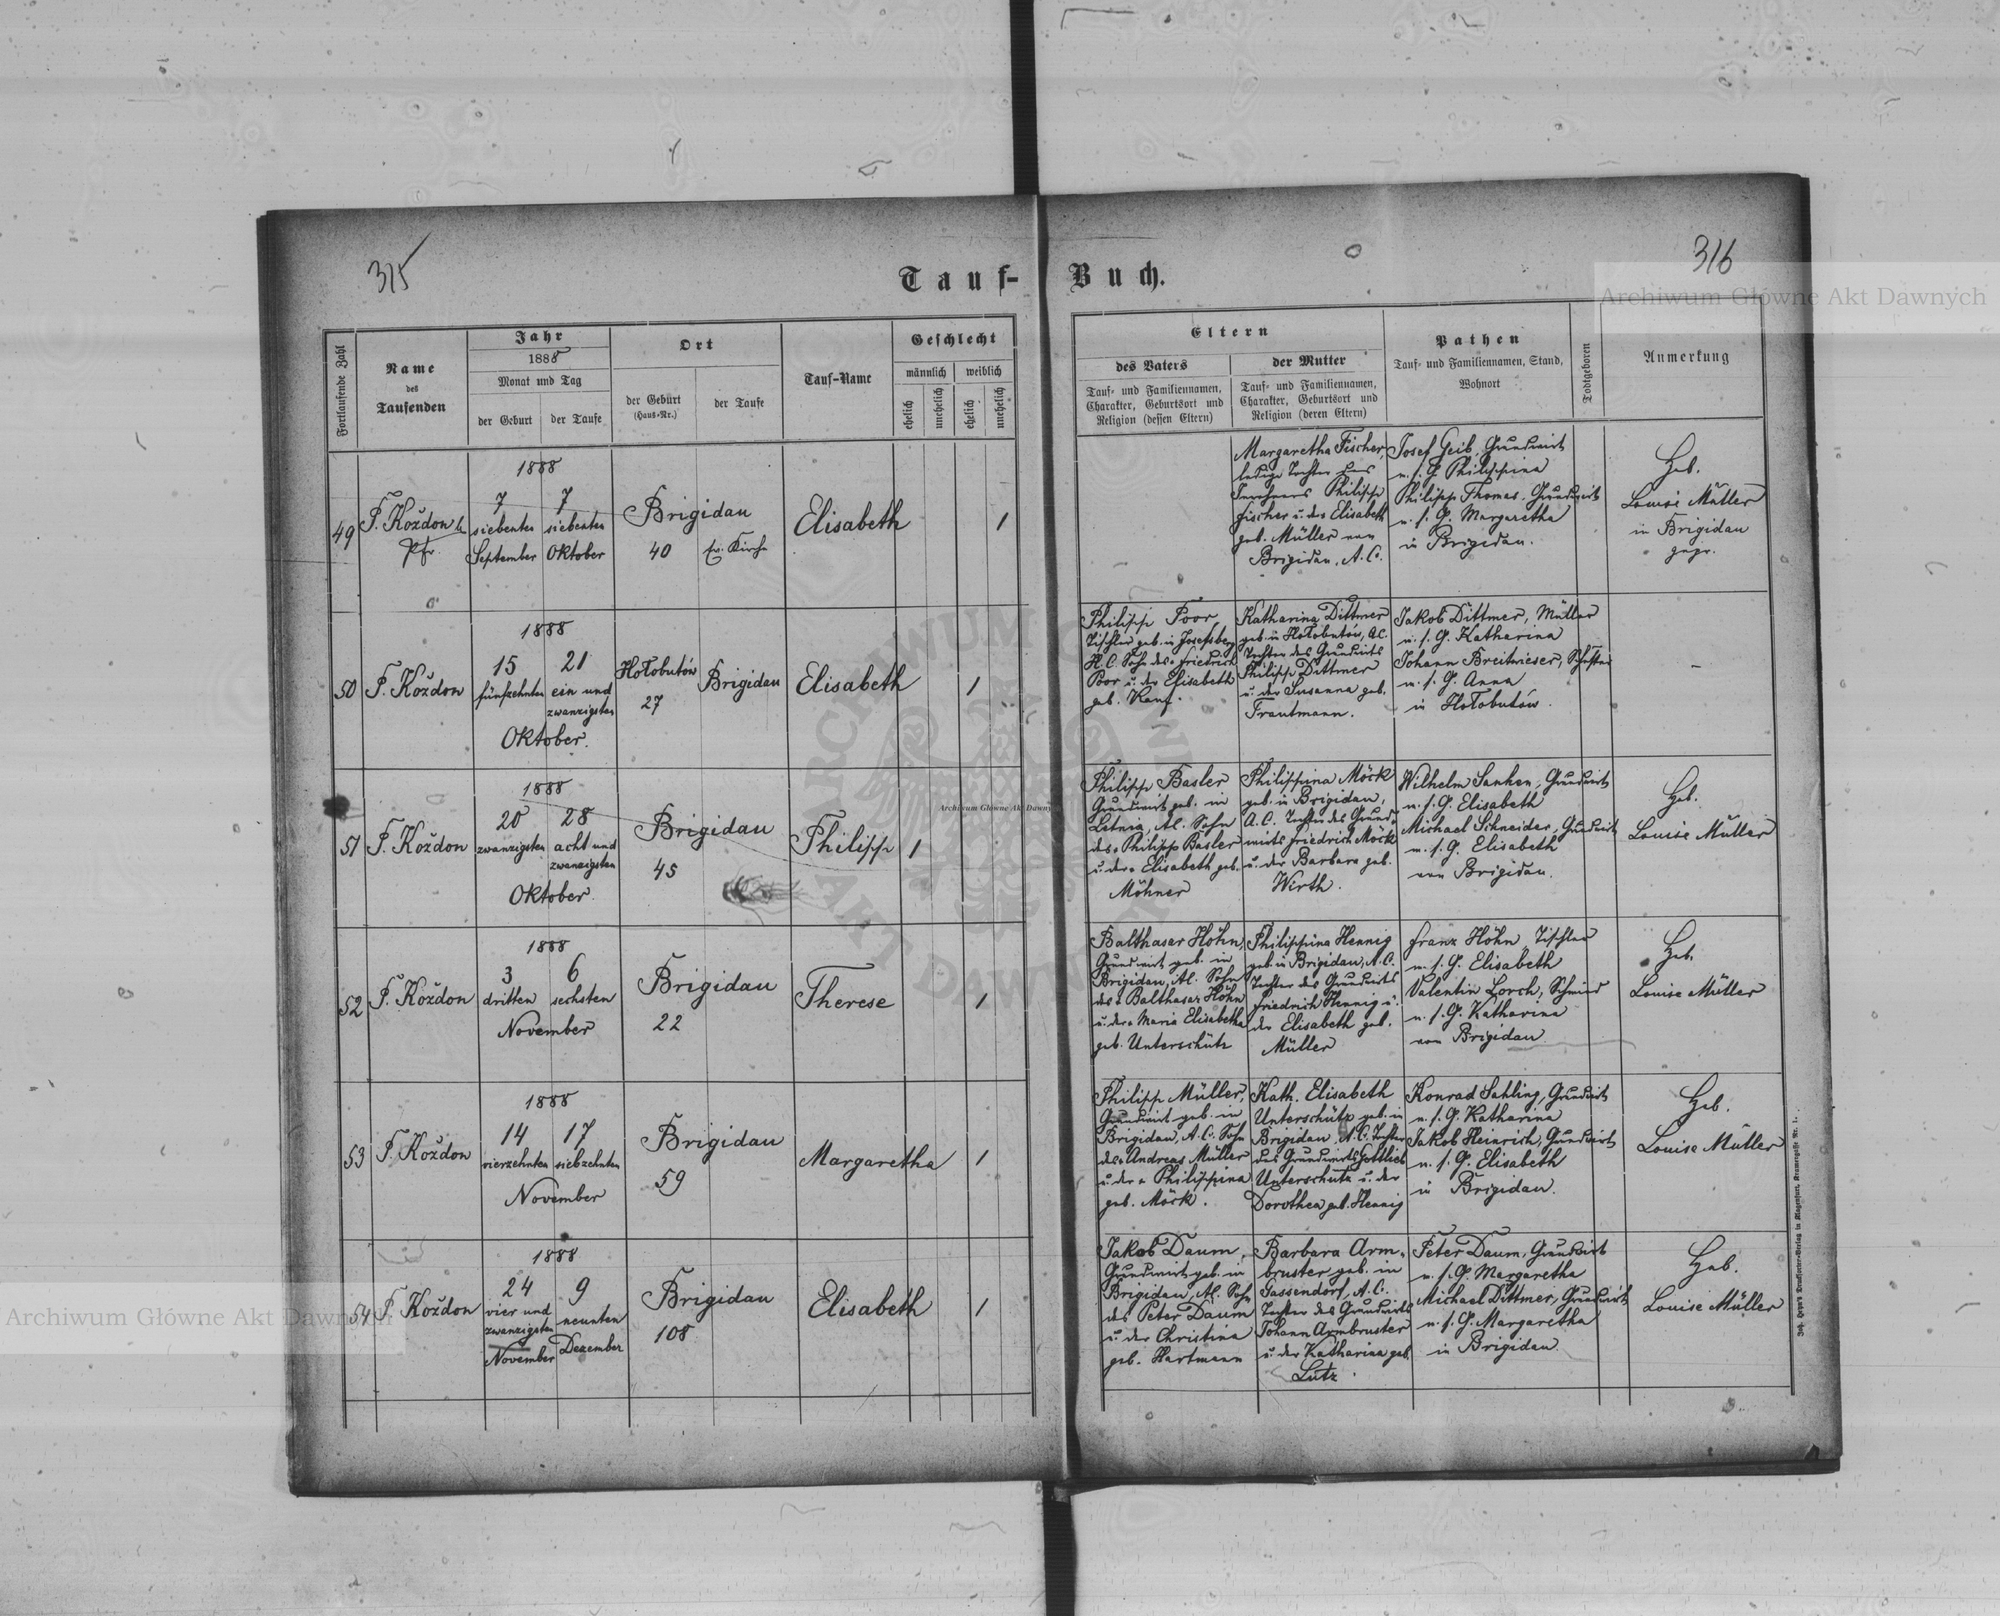 315
Tauf-
Buch.
316
Archiwum Główne Akt Dawnych
Fortlaufende Zahl
Name
des
Taufenden
Jahr
1888
Monat und Tag
der Geburt
der Taufe
Ort
der Geburt
(Haus-Nr.)
der Taufe
Tauf-Name
Geschlecht
männlich
weiblich
ehelich
unehelich
ehelich
unehelich
Eltern
des Vaters
Tauf- und Familiennamen,
Charakter, Geburtsort und
Religion (dessen Eltern)
der Mutter
Tauf- und Familiennamen,
Charakter, Geburtsort und
Religion (deren Eltern)
Pathen
Tauf- und Familiennamen, Stand,
Wohnort
Todtgeboren
Anmerkung
49
F. Koždon
Pfr.
1888
7
siebenten
September
7
siebenten
Oktober
Brigidau
40
ev. Kirche
Elisabeth
1
Margaretha Fischer,
ledige Tochter des
Inwohners Philipp
Fischer u. der Elisabeth
geb. Müller von
Brigidau, A. C.
Josef Geib, Grundwirt
u. s. G. Philippina
Philipp Thomas, Grundwirt
u. s. G. Margaretha
in Brigidau.
Heb.
Louise Müller
in Brigidau
gepr.
50
F. Koždon
1888
15
fünfzehnten
21
ein und
zwanzigsten
Oktober.
Hołobutów
27
Brigidau
Elisabeth
1
Philipp Poor
Tischler geb. in Josefsberg
H. C. Sohn des Friedrich
Poor u. der Elisabeth
geb. Kanf.
Katharina Dittmer
geb. in Hołobutów, A.C.
Tochter des Grundwirts
Philipp Dittmer
u. der Susanna geb.
Trautmann.
Jakob Dittmer, Müller
u. s. G. Katharina
Johann Breitwieser,
u. s. G. Anna
in Hołobutów.
–
51
F. Koždon
1888
20
zwanzigsten
28
acht und
zwanzigsten
Oktober.
Brigidau
45
Philipp
1
Philipp Basler
Grundwirt geb. in
Letnia, A.C. Sohn
des Philipp Basler
u. der Elisabeth geb.
Möhner
Philippina Möck
geb. in Brigidau,
A. C. Tochter des Grund-
wirts Friedrich Möck
u. der Barbara geb.
Wirth.
Wilhelm Sanken, Grundwirt
u. s. G. Elisabeth
Michael Schneider, Grundwirt
u. s. G. Elisabeth
von Brigidau.
Heb.
Louise Müller
52
F. Koždon
1888
3
dritten
6
sechsten
November
Brigidau
22
Therese
1
Balthasar Höhn,
Grundwirt geb. in
Brigidau, A.C. Sohn
des Balthasar Höhn
u. der Maria Elisabetha
geb. Unterschütz
Philippina Hennig
geb. in Brigidau, A. C.
Tochter des Grundwirts
Friedrich Hennig u.
der Elisabeth geb.
Müller
Franz Höhn, Tischler
u. s. G. Elisabeth
Valentin Lorch, Schmied
u. s. G. Katharina
von Brigidau
Heb.
Louise Müller
53
F. Koždon
1888
14
vierzehnten
17
siebzehnten
November
Brigidau
59
Margaretha
1
Philipp Müller,
Grundwirt geb. in
Brigidau, A. C. Sohn
des Andreas Müller
u. der Philippina
geb. Möck.
Kath. Elisabeth
Unterschütz geb. in
Brigidau, A. C. Tochter
des Grundwirts Gottlieb
Unterschütz u. der
Dorothea geb. Hennig
Konrad Sahling, Grundwirt
u. s. G. Katharina
Jakob Heinrich, Grundwirt
u. s. G. Elisabeth
in Brigidau.
Heb.
Louise Müller
54
F. Koždon
1888
24
vier und
zwanzigsten
November
9
neunten
Dezember
Brigidau
108
Elisabeth
1
Jakob Daum,
Grundwirt geb. in
Brigidau, A.C. Sohn
des Peter Daum
u. der Christina
geb. Hartmann
Barbara Arm-
bruster geb. in
Gassendorf, A. C.
Tochter des Grundwirts
Johann Armbruster
u. der Katharina geb.
Lutz.
Peter Daum, Grundwirt
u. s. G. Margaretha
Michael Dittmer, Grundwirt
u. s. G. Margaretha
in Brigidau
Heb.
Louise Müller
Archiwum Główne Akt Dawnych
Archiwum Główne Akt Dawnych
Joh. Heyn's Drucksorten-Verlag in Klagenfurt, Kramergasse Nr. 1.